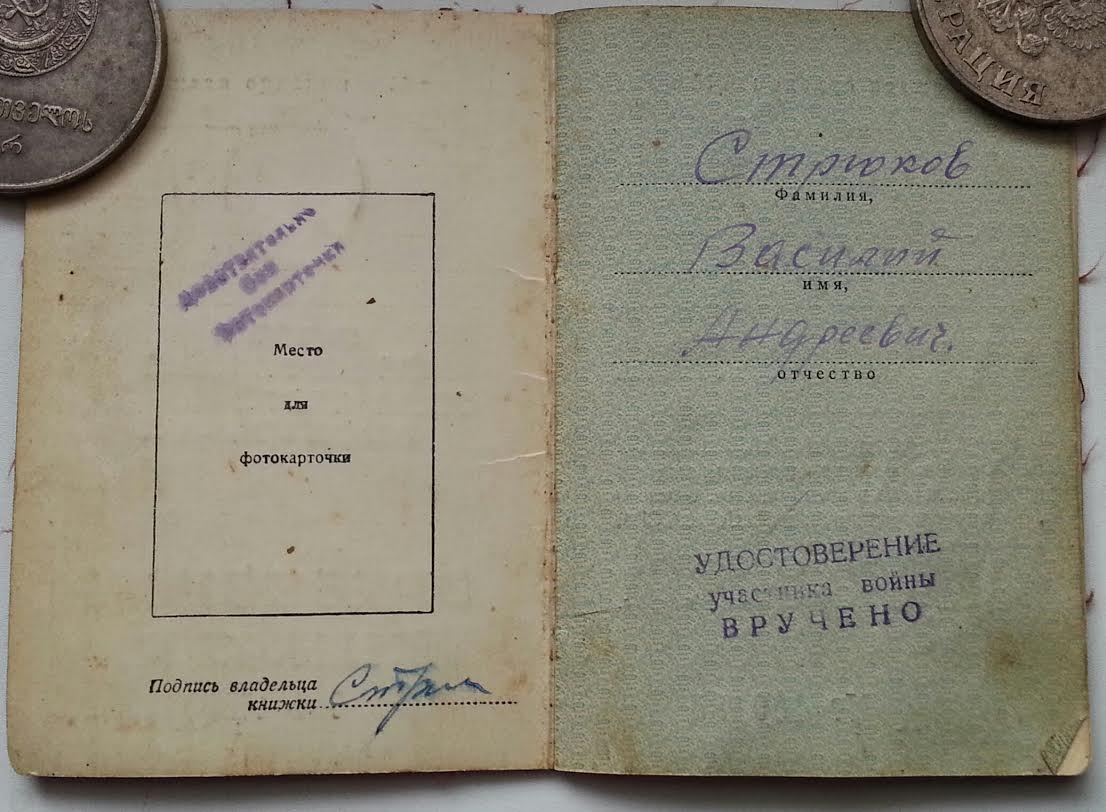 ᲗᲕᲔᲚᲝᲡ
РАЦИЯ
Действительно
без
фотокарточки
Место
для
фотокарточки
Подпись владельца
книжки
Стрюков
Фамилия,
Василий
имя,
Андреевич.
отчество
УДОСТОВЕРЕНИЕ
участника войны
ВРУЧЕНО